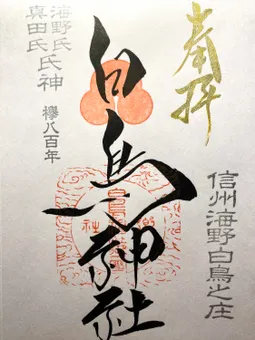 奉拝
信州海野白鳥之庄
白鳥神社
海野氏
真田氏氏神
欅八百年